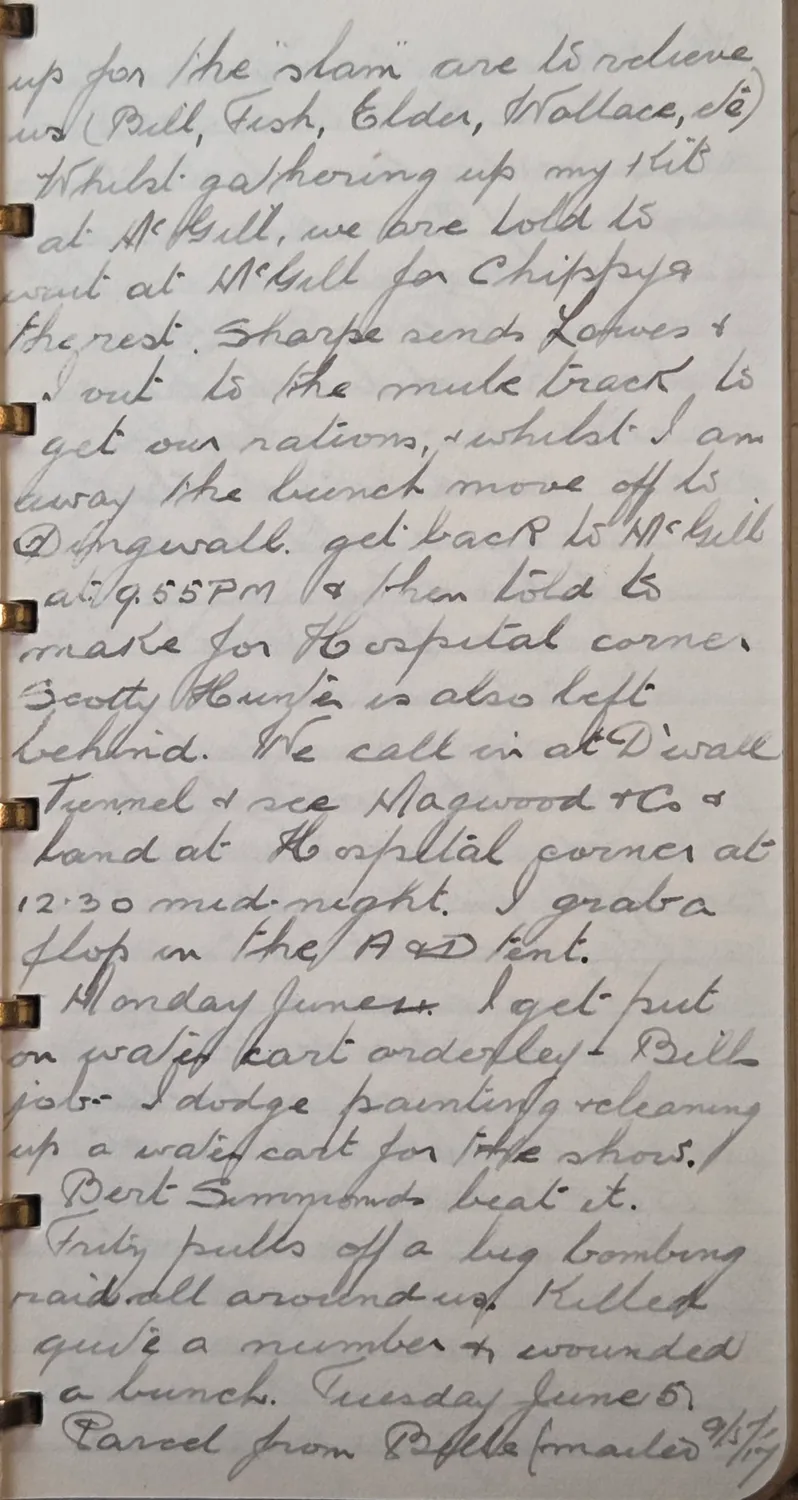 up for the "slam" are to relieve
us (Bill, Fish, Elder, Wallace, etc)
Whilst gathering up my kit
at McGill, we are told to
wait at McGill for Chippy &
the rest. Sharpe sends Lowes &
I out to the mule track to
get our rations, & whilst I am
away the bunch move off to
Dingwall. get back to McGill
at 9.55PM & then told to
make for Hospital corner
Scotty Hunter is also left
behind. We call in at D'wall
Tunnel & see Magwood & Co &
land at Hospital corner at
12.30 mid-night. I grab a
flop in the A & D tent.
Monday June 4. I get put
on water cart orderley - Bill
job - I dodge painting & cleaning
up a water cart for the show.
Bert Simmonds beat it.
Fritz pulls off a big bombing
raid all around us. Killed
quite a number & wounded
a bunch. Tuesday June 5.
Parcel from Belle (mailed 9/5/17